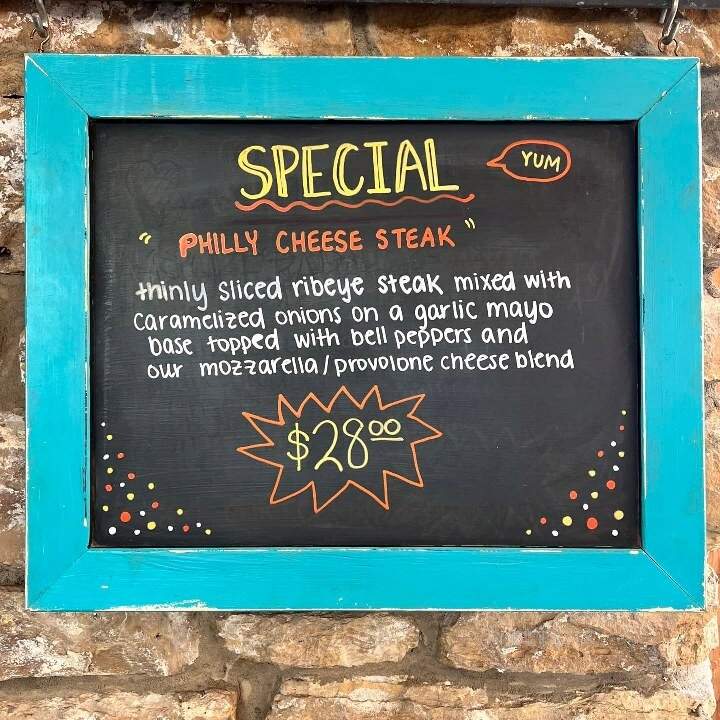 SPECIAL
YUM
"PHILLY CHEESE STEAK"
thinly sliced ribeye steak mixed with
caramelized onions on a garlic mayo
base topped with bell peppers and
our mozzarella/provolone cheese blend
$2800